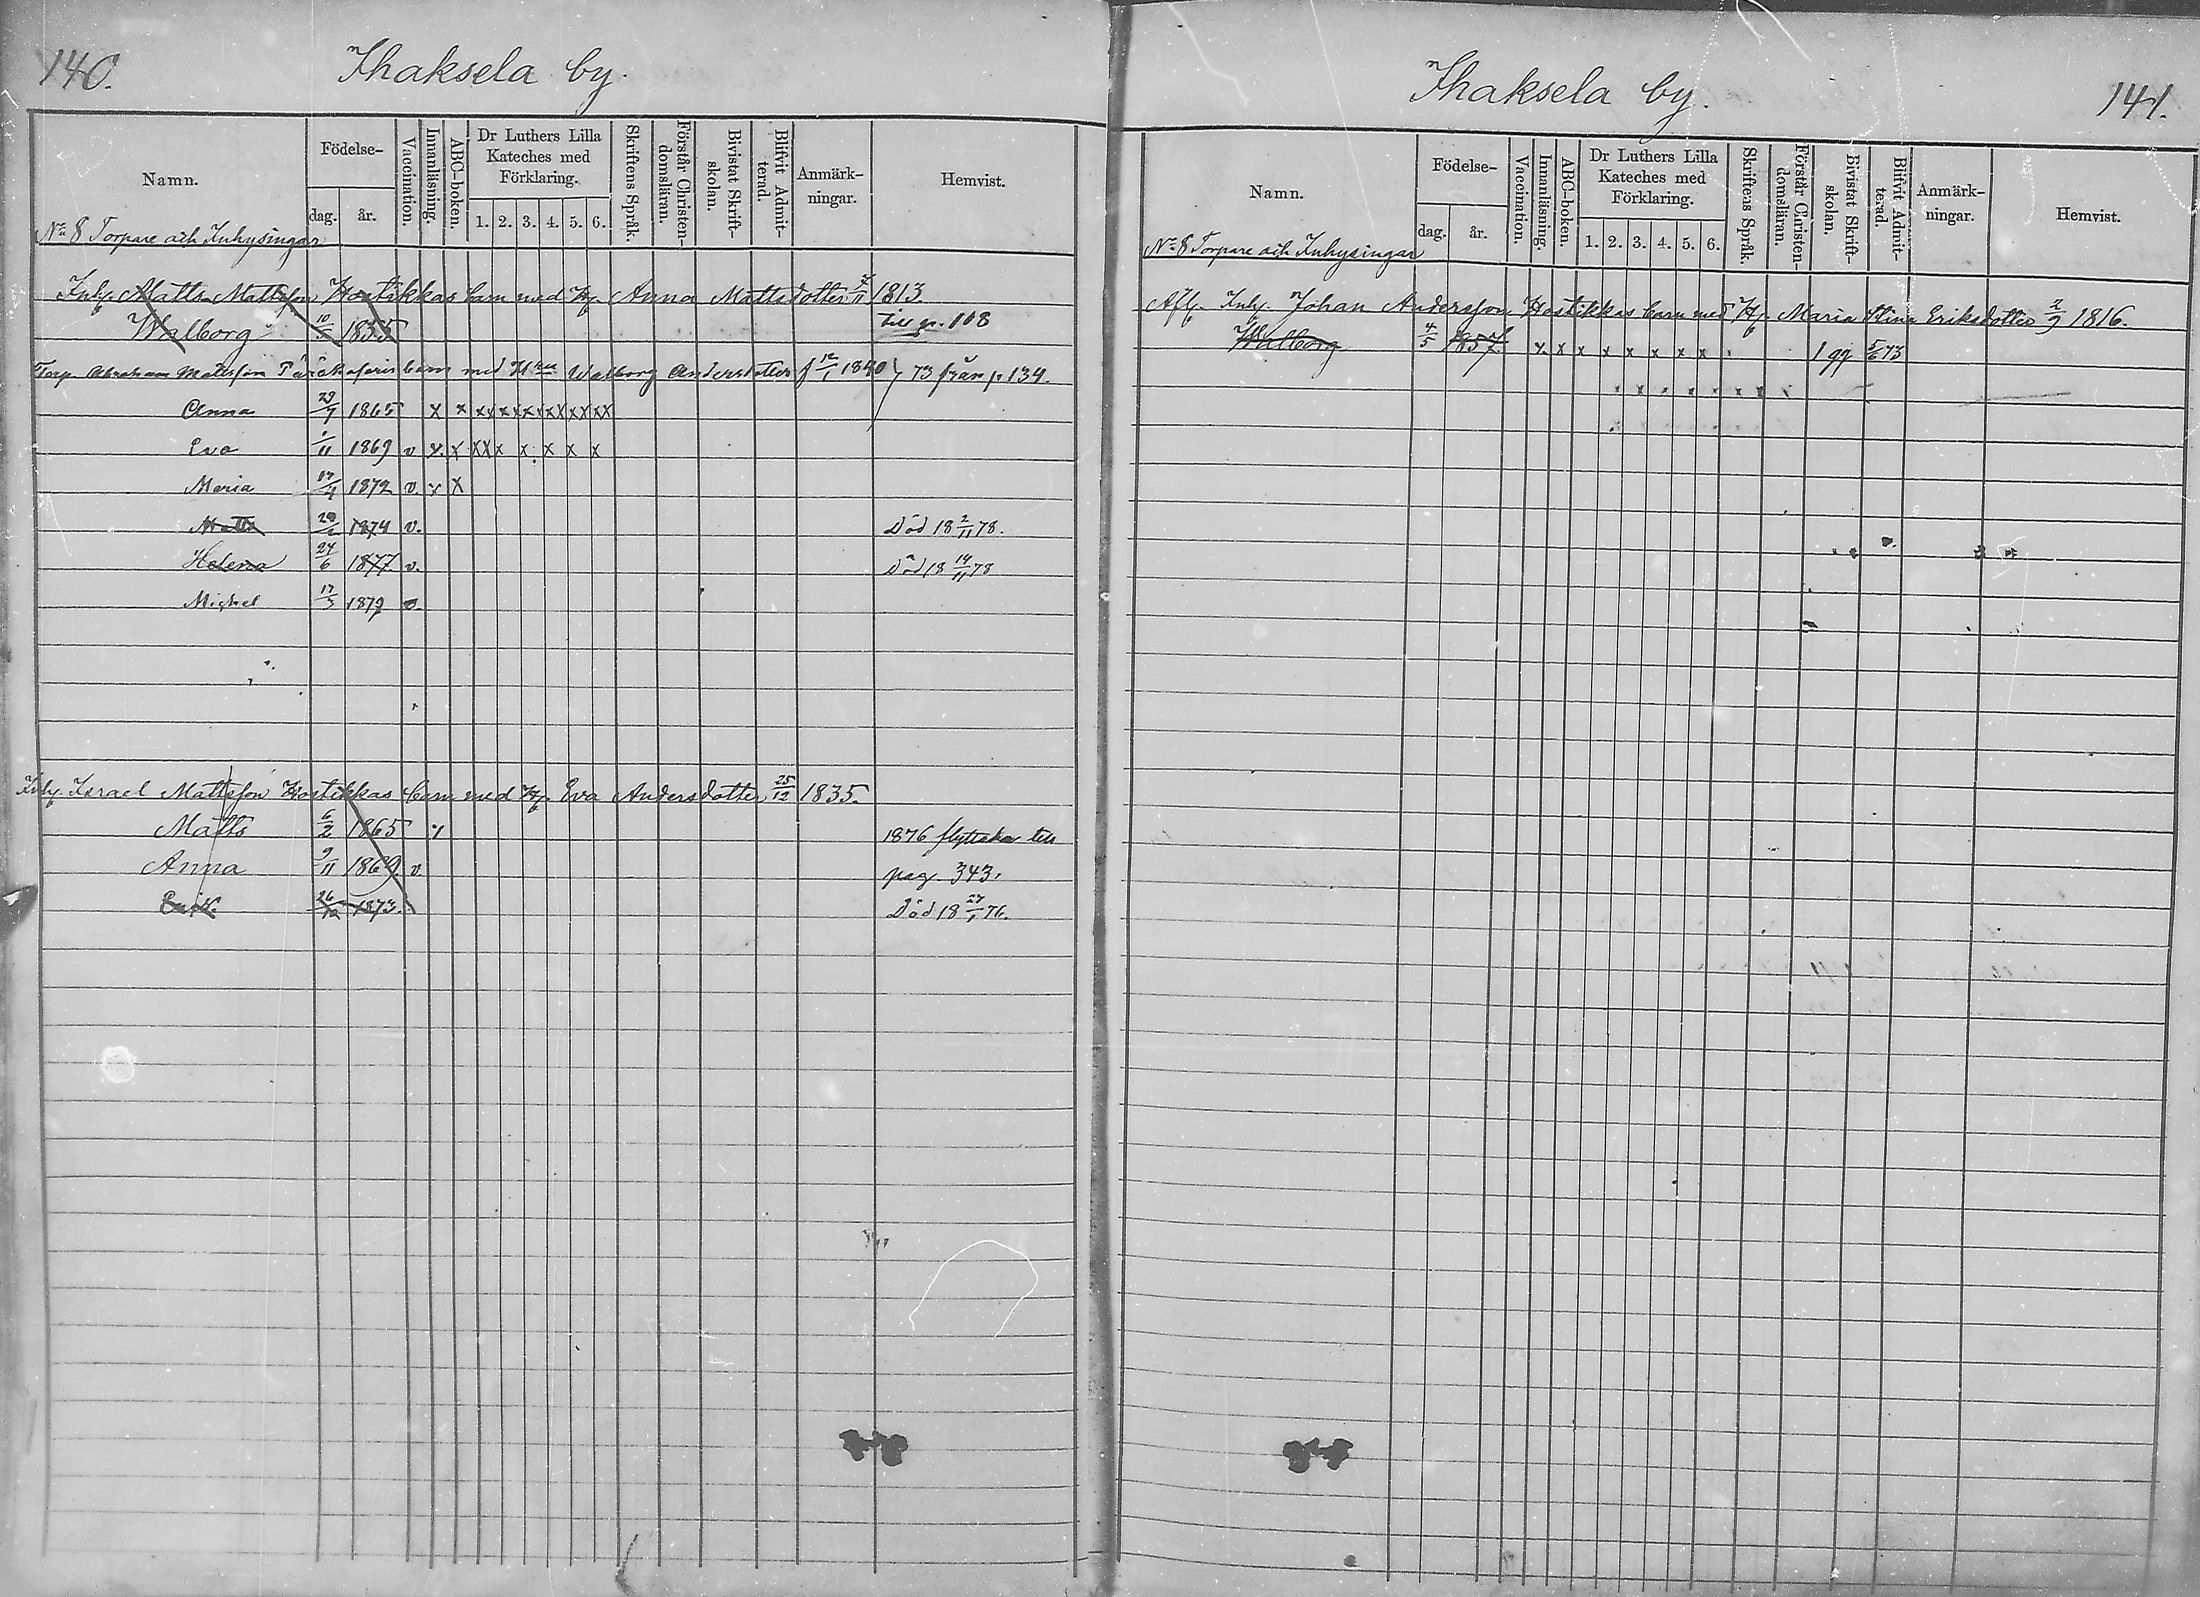 140. Ihaksela by.
Namn. Födelse- dag. år. Vaccination. Innanläsning. ABC-boken. Dr Luthers Lilla Kateches med Förklaring. 1. 2. 3. 4. 5. 6. Skriftens Språk. Förstår Christen-domsläran. Bivistat Skrift-skolan. Blifvit Admit-terad. Anmärk-ningar. Hemvist.
No 8 Torpare och Inhysingar
Inhy. Matts Mattsson Hostikkas barn med H. Anna Mattsdotter 4/11 1813
Walborg 10/5 1855 till p. 108
Torp. Abraham Matsson barn med H Walborg Andersdotter f 12/1 1840 73 från p. 134.
Anna 29/7 1865 x x x x x x x x x x x x x
Eva 1/11 1869 v x x x x x x x x x
Maria 17/4 1872 v. x x
Matts 28/2 1874 v. Död 18 2/11 78.
Helena 24/6 1877 v. Död 18 14/11 78
Michel 17/3 1879 v.
Inhy. Israel Mattsson Hostikkas barn med H. Eva Andersdotter 25/12 1835.
Matts 6/2 1865 v 1876 flyttaka till
Anna 9/11 1869. v. pag. 343.
Erik 26/12 1873. Död 18 27/1 76.
Ihaksela by. 141.
Namn. Födelse- dag. år. Vaccination. Innanläsning. ABC-boken. Dr Luthers Lilla Kateches med Förklaring. 1. 2. 3. 4. 5. 6. Skriftens Språk. Förstår Christen-domsläran. Bivistat Skrift-skolan. Blifvit Admit-terad. Anmärk-ningar. Hemvist.
No 8 Torpare och Inhysingar
Afl. Inhy. Johan Andersson Hostikkas barn med H. Maria Stina Eriksdotter 2/9 1816.
Walborg 4/5 1857. x x x x x x x x 1 gg 5/6 73